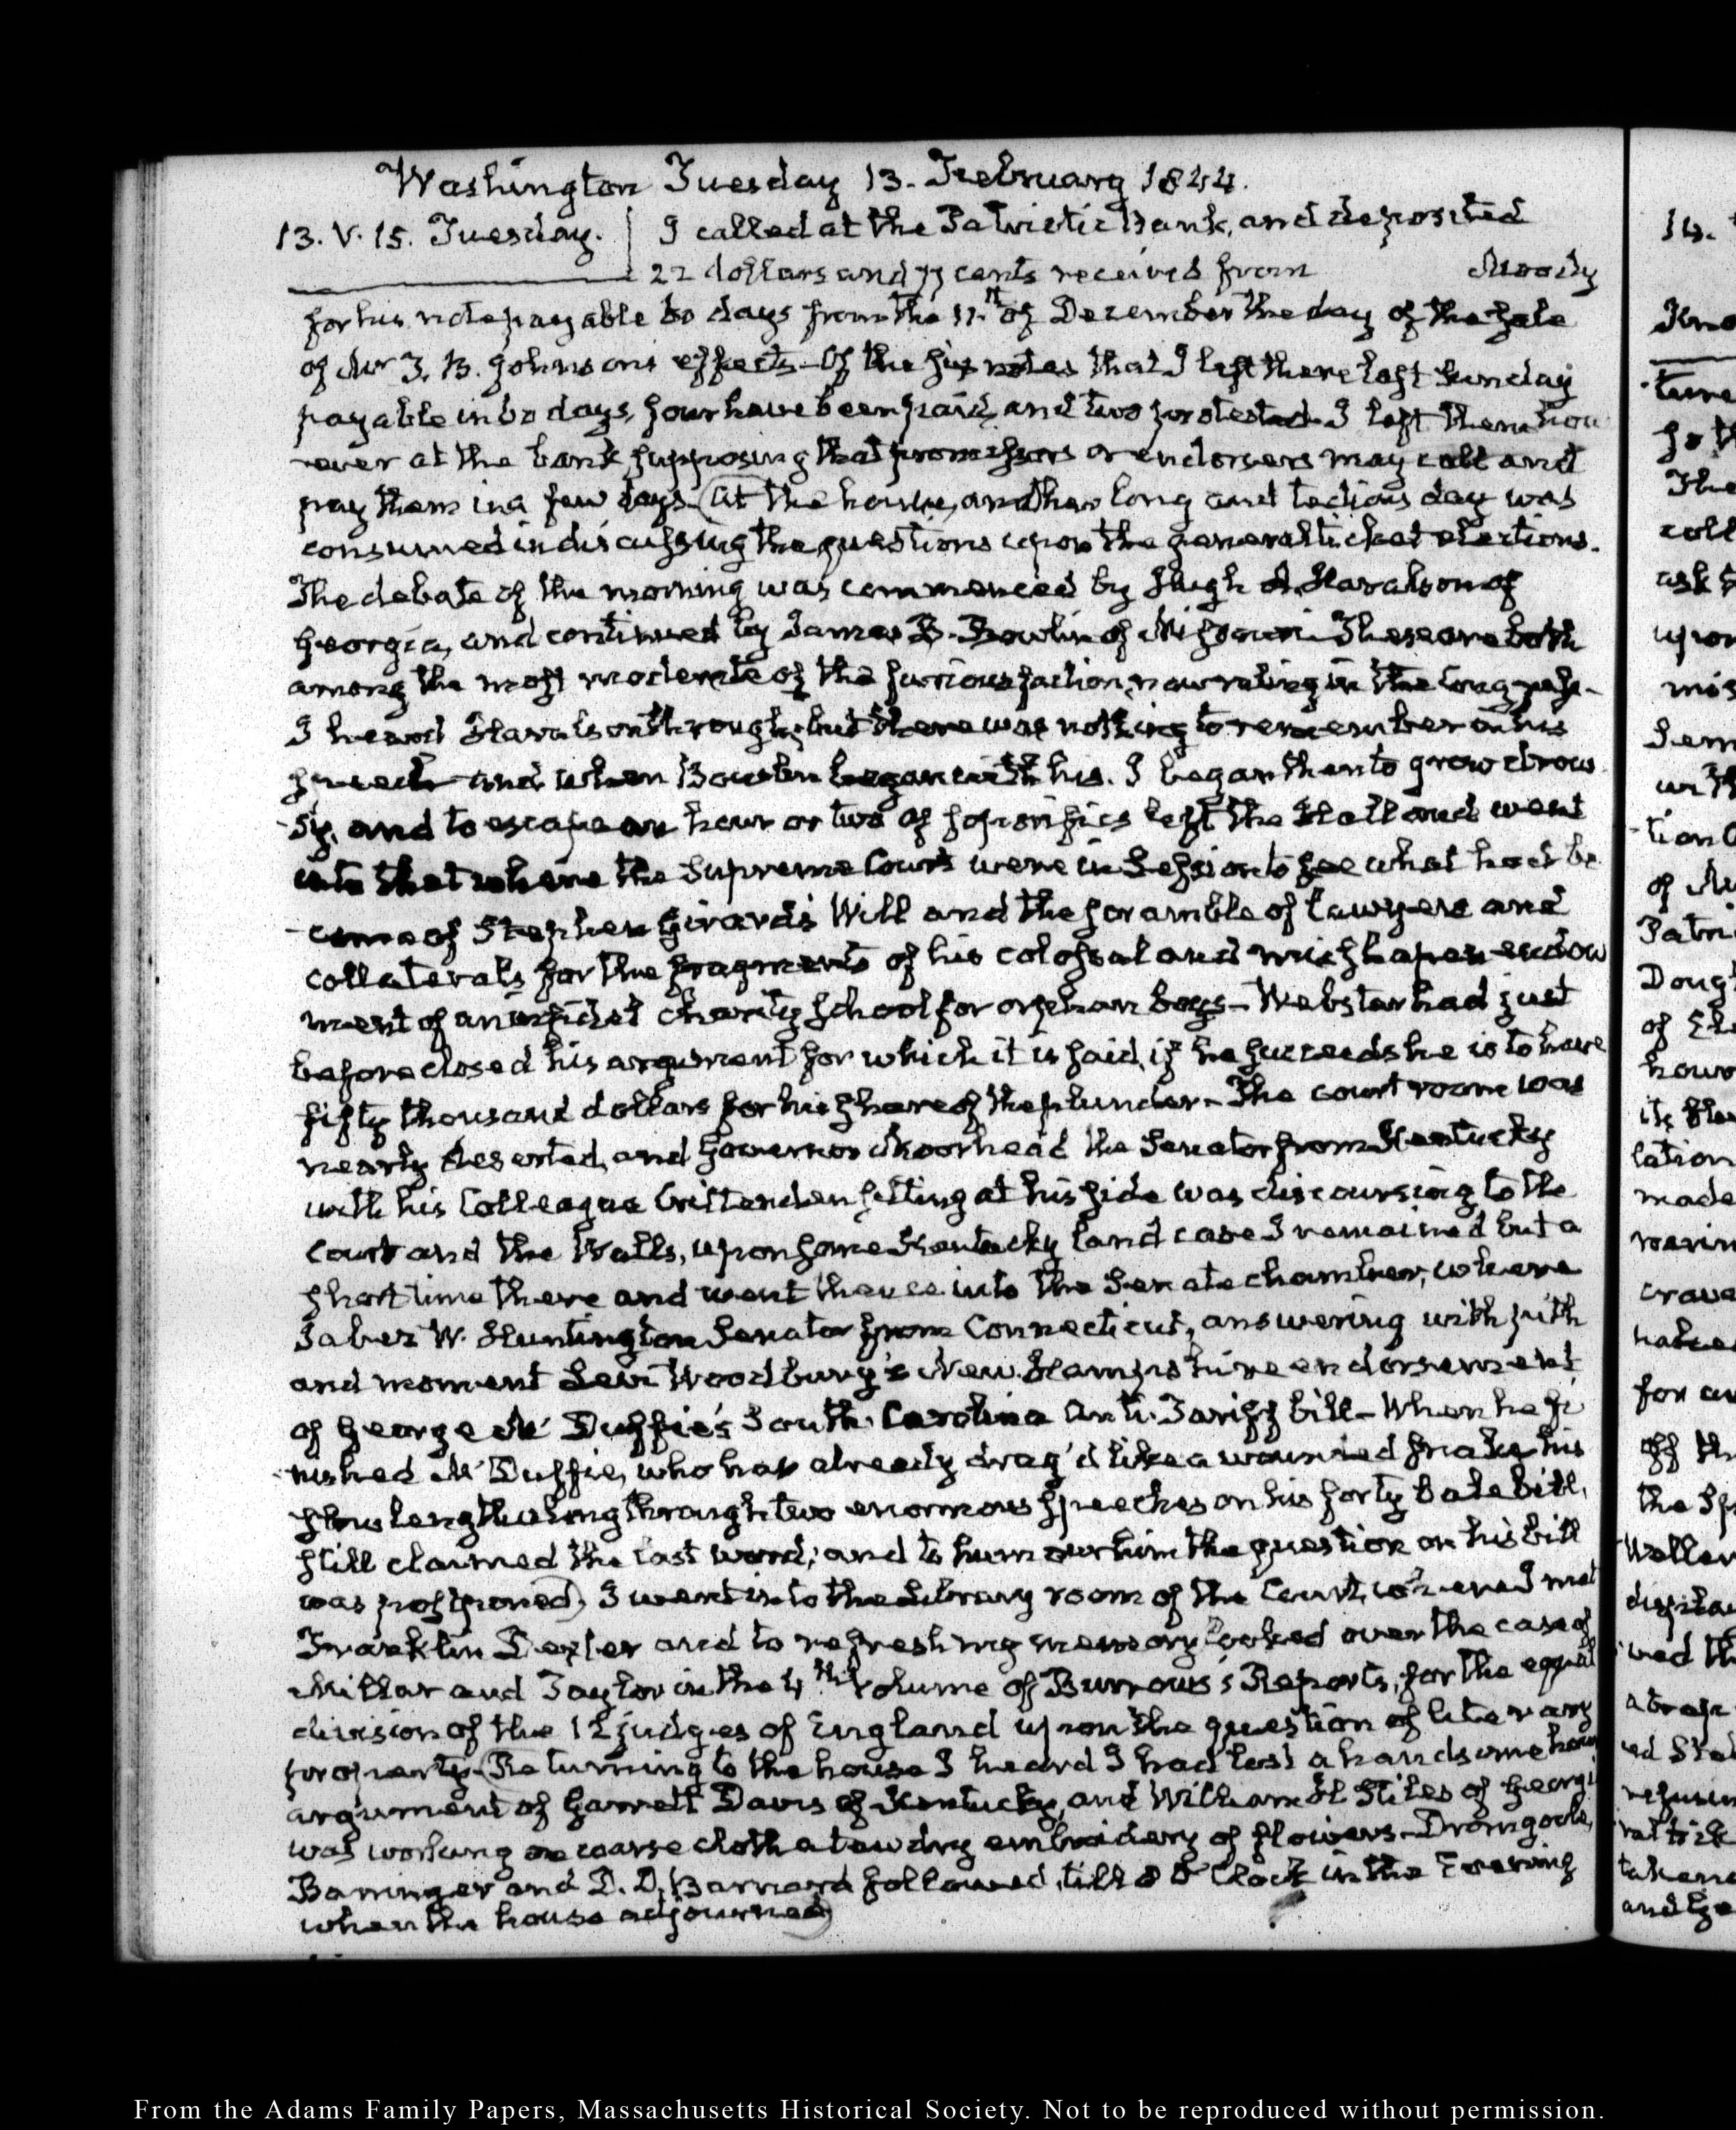 Washington Tuesday 13. February 1844.
13. V. 15. Tuesday. I called at the Patriotic Bank, and deposited
22 dollars and 77 cents received from Moody
for his note payable 60 days from the 11th of December the day of the sale
of Mr T. B. Johnson's effects— Of the six notes that I left there last Sunday
payable in 60 days, four have been paid, and two protested. I left them how
-ever at the bank supposing that promissors or endorsers may call and
pay them in a few days— At the house, another long and tedious day was
consumed in discussing the questions upon the general ticket elections.
The debate of the morning was commenced by Hugh A. Haralson of
Georgia, and continued by James B. Bowlin of Missouri— These are both
among the most moderate of the furious faction, now ruling in the
I heard Haralson through; but there was nothing to remember in his
speech— and when Bowlin began with his. I began then to grow drow
-sy, and to escape an hour or two of soporifics left the Hall and went
into that where the Supreme Court were in Session to see what had be
-come of Stephen Girard's Will and the scramble of lawyers and
collaterals for the fragments of his colossal and misshapen endow
ment of an infidel charity school for orphan boys— Webster had just
before closed his argument for which it is said, if he succeeds he is to have
fifty thousand dollars for his share of the plunder— The court room was
nearly deserted, and Governor Moorhead the Senator from Kentucky
with his Colleague Crittenden sitting at his side was discoursing to the
Court and the Walls, upon some Kentucky land case I remained but a
short time there and went thence into the Senate chamber, where
Jabez W. Huntington Senator from Connecticut, answering with pith
and moment Levi Woodbury's New Hampshire endorsement
of George Mc Duffie's South Carolina Anti-Tariff bill— When he fi
-nished McDuffie, who has already drag'd like a wounded snake his
slow length along through two enormous speeches on his forty bale bill,
still claimed the last word; and to humour him the question on his bill
was postponed. I went into the Library room of the Court, where I met
Franklin Dexter and to refresh my memory looked over the case of
Millar and Taylor in the 4th Volume of Burrows's Reports, for the equal
division of the 12 judges of England upon the question of literary
property— Returning to the house I heard I had lost a handsome hour
argument of Garrett Davis of Kentucky, and William H Stiles of Georgia
was working on coarse cloth a tawdry embroidery of flowers— Dromgoole,
Barringer and D. D. Barnard followed, till 8 O'Clock in the Evening
when the house adjourned
From the Adams Family Papers, Massachusetts Historical Society. Not to be reproduced without permission.